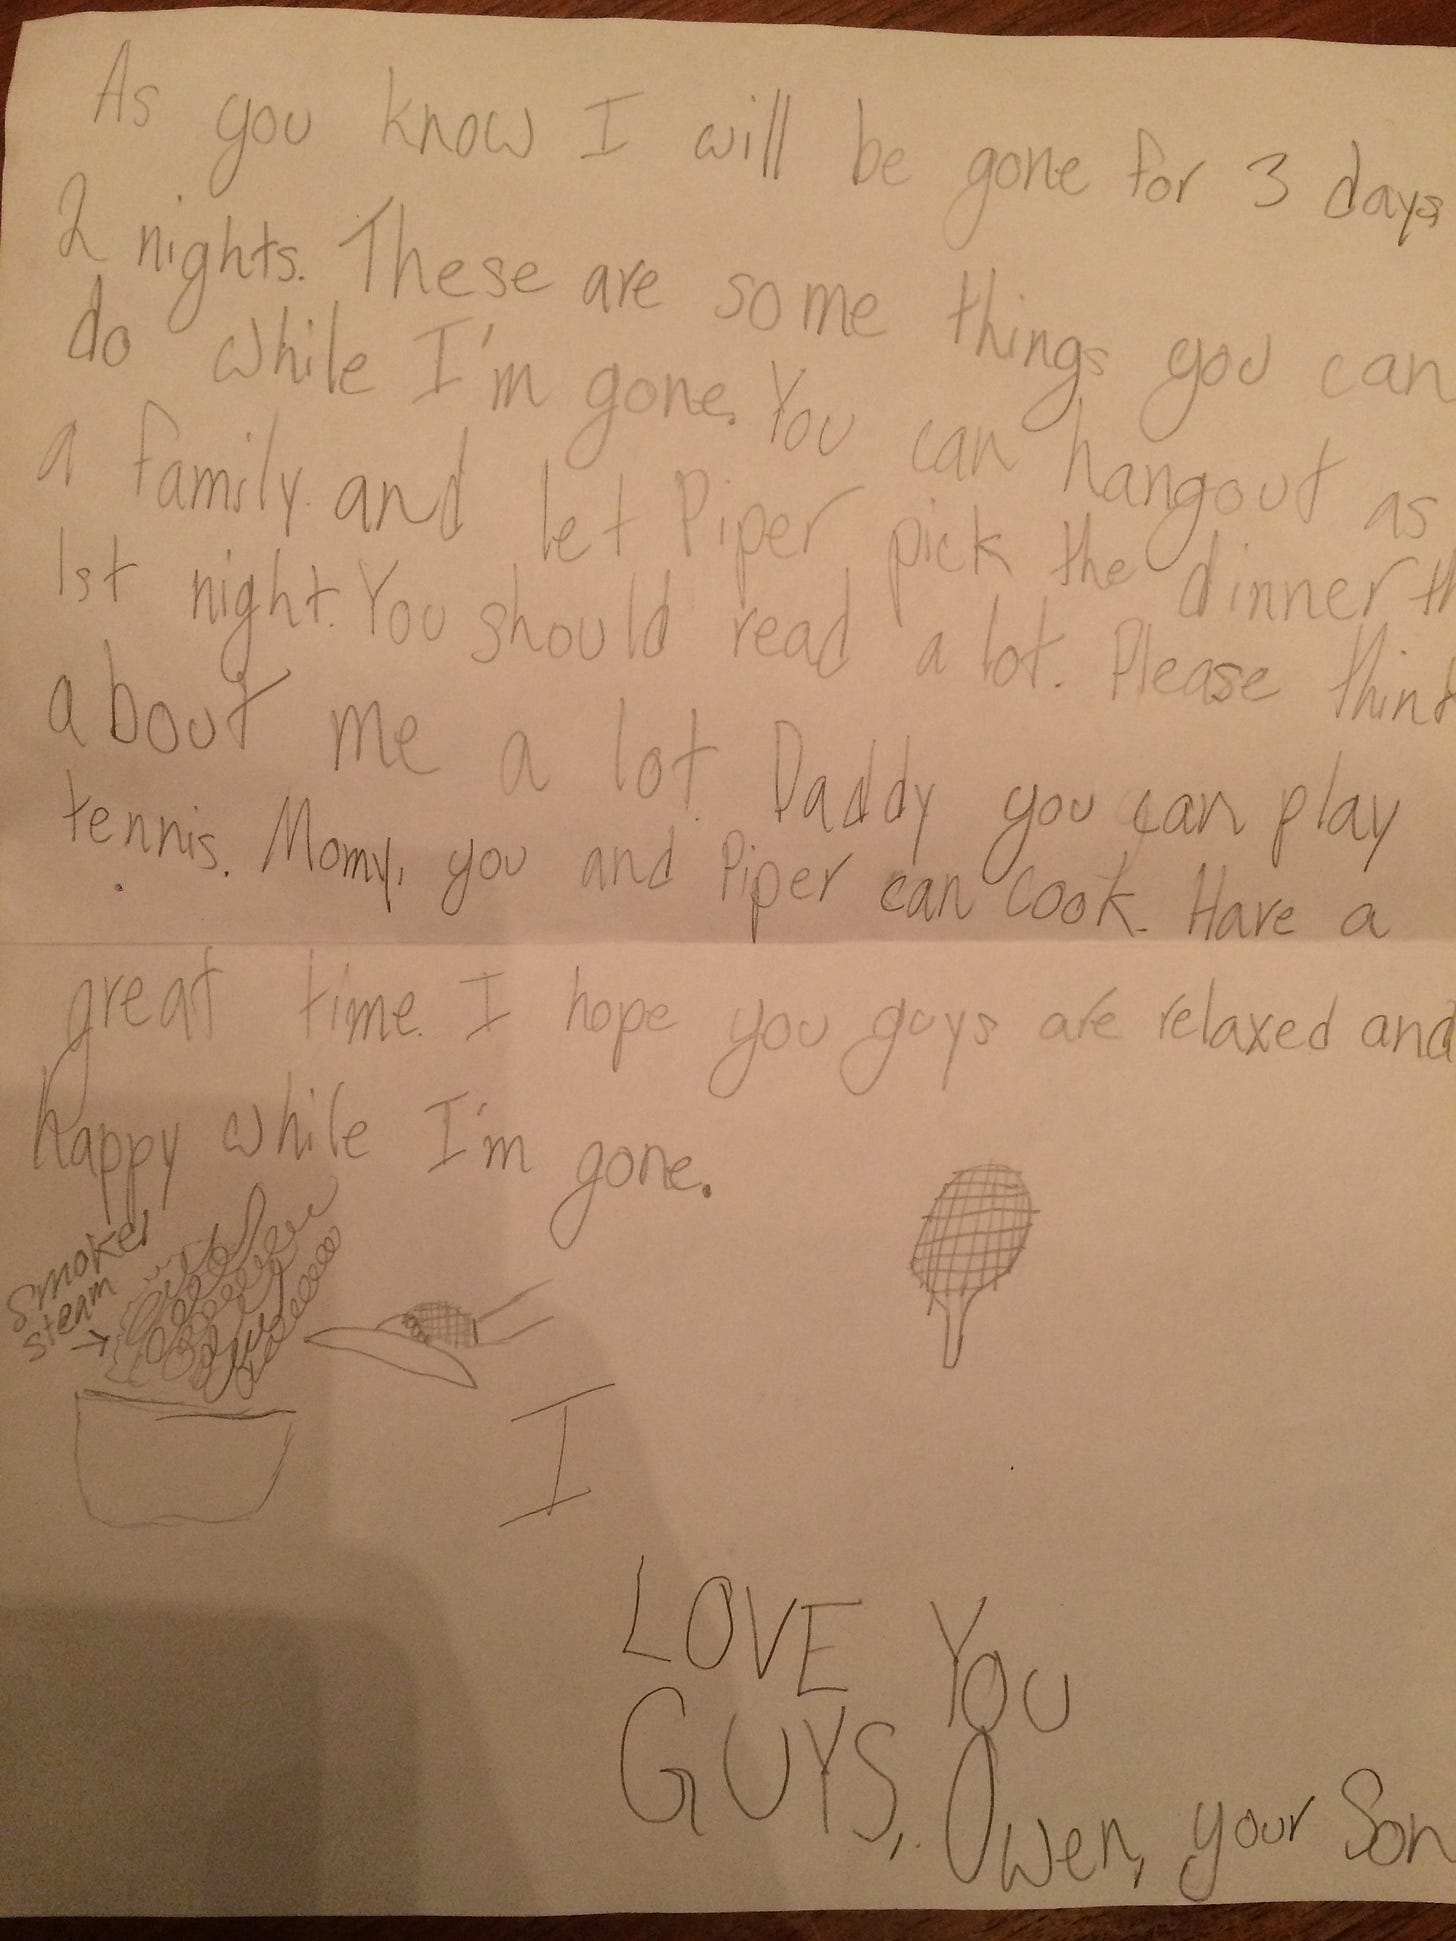 As you know I will be gone for 3 days,
2 nights. These are some things you can
do while I'm gone. You can hangout as
a family and let Piper pick the dinner th
1st night. You should read a lot. Please think
about me a lot. Daddy you can play
tennis. Momy, you and Piper can cook. Have a
great time. I hope you guys are relaxed and
happy while I'm gone.
smoke
steam
I
LOVE YOU
GUYS,
Owen, your Son